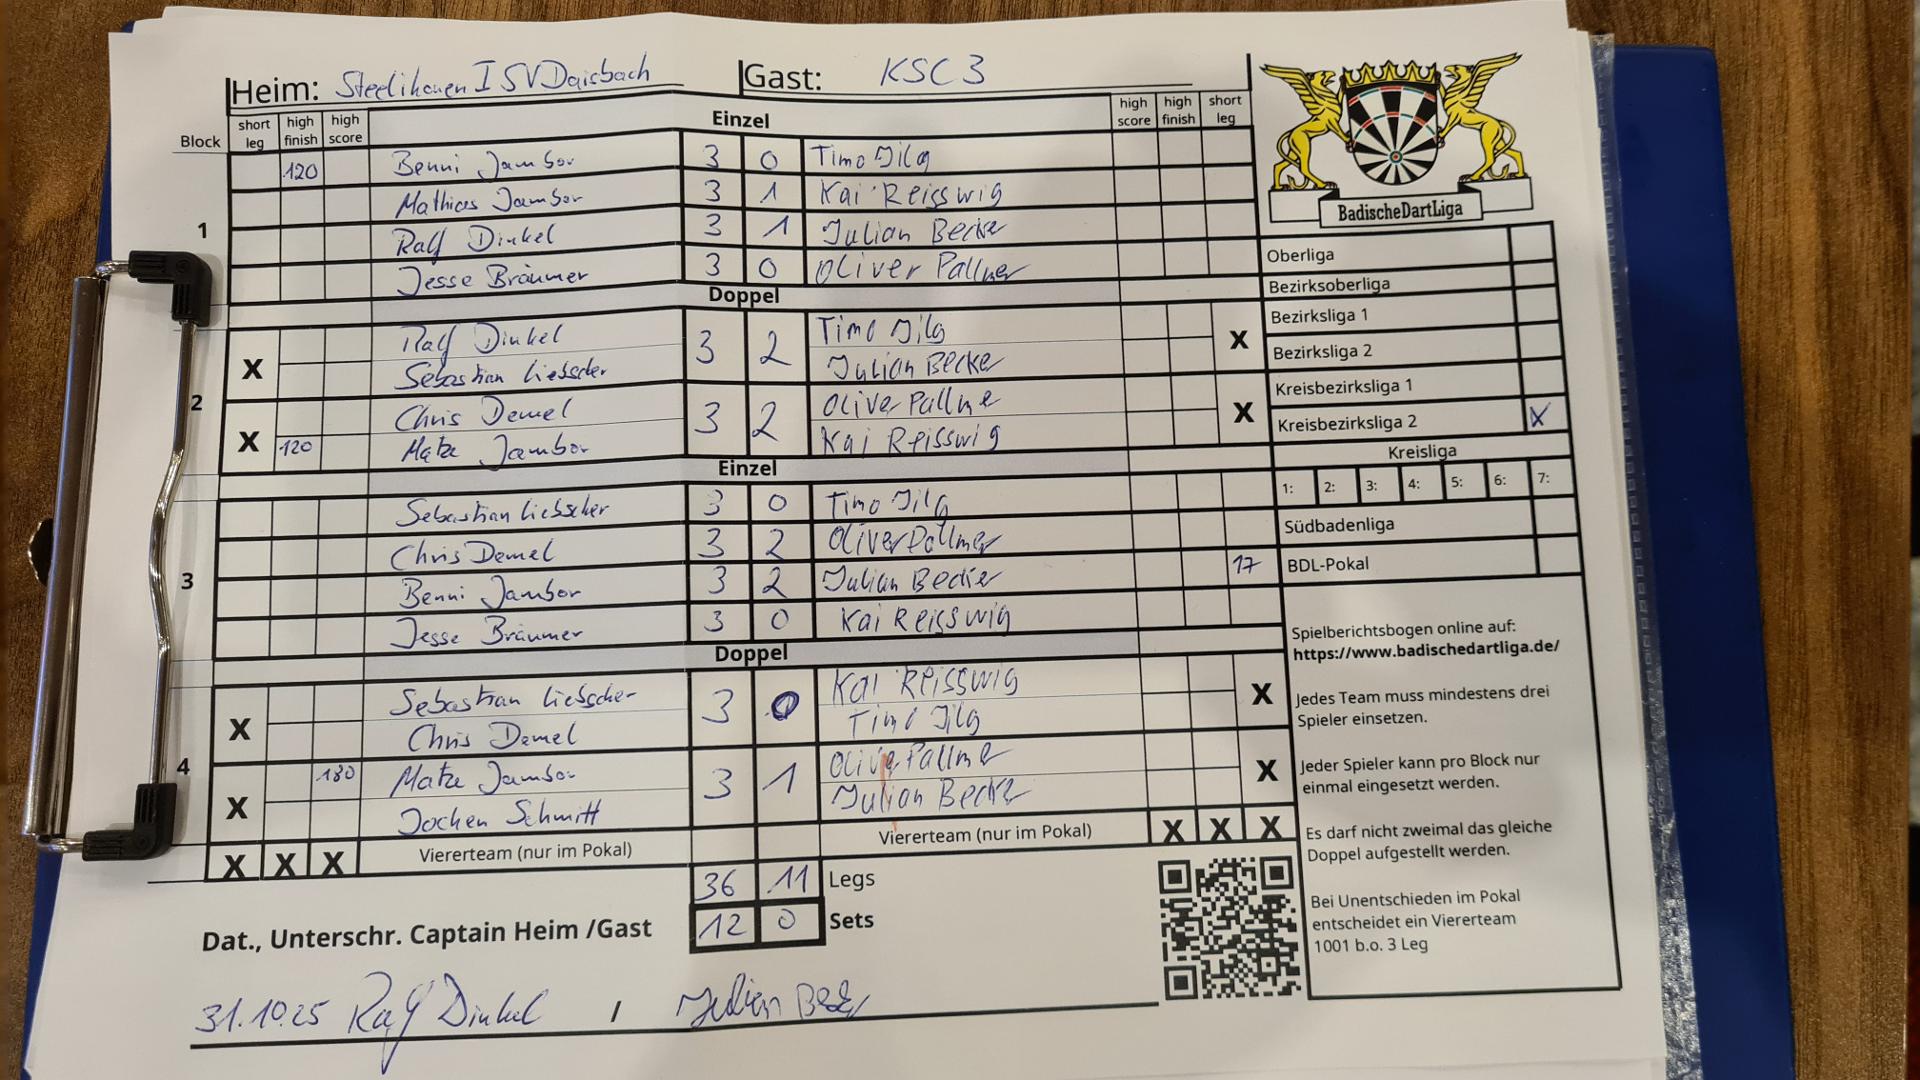 Heim: Steelihauen I SV Daisbach Gast: KSC 3
Block short leg high finish high score Einzel high score high finish short leg
1
120 Benni Jambor 3 0 Timo Jilg
Mathias Jambor 3 1 Kai Reisswig
Ralf Dinkel 3 1 Julian Becker
Jesse Bräumer 3 0 Oliver Pallmer
Doppel
2
X Ralf Dinkel 3 2 Timo Jilg X
Sebastian Liebscher Julian Becker
X Chris Demel 3 2 Oliver Pallme X
120 Matze Jambor Kai Reisswig
Einzel
3
Sebastian Liebscher 3 0 Timo Jilg
Chris Demel 3 2 Oliver Pallmer
Benni Jambor 3 2 Julian Becker 17
Jesse Bräumer 3 0 Kai Reisswig
Doppel
4
X Sebastian Liebscher 3 0 Kai Reisswig X
Chris Demel Timo Jilg
X 180 Matze Jambor 3 1 Olive Pallme X
Jochen Schmitt Julian Becker
X X X Viererteam (nur im Pokal) Viererteam (nur im Pokal) X X X
36 11 Legs
12 0 Sets
Dat., Unterschr. Captain Heim /Gast
31.10.25 Ralf Dinkel / Julian Becker
BadischeDartLiga
Oberliga
Bezirksoberliga
Bezirksliga 1
Bezirksliga 2
Kreisbezirksliga 1
Kreisbezirksliga 2 X
Kreisliga
1: 2: 3: 4: 5: 6: 7:
Südbadenliga
BDL-Pokal
Spielberichtsbogen online auf:
https://www.badischedartliga.de/
Jedes Team muss mindestens drei
Spieler einsetzen.
Jeder Spieler kann pro Block nur
einmal eingesetzt werden.
Es darf nicht zweimal das gleiche
Doppel aufgestellt werden.
Bei Unentschieden im Pokal
entscheidet ein Viererteam
1001 b.o. 3 Leg